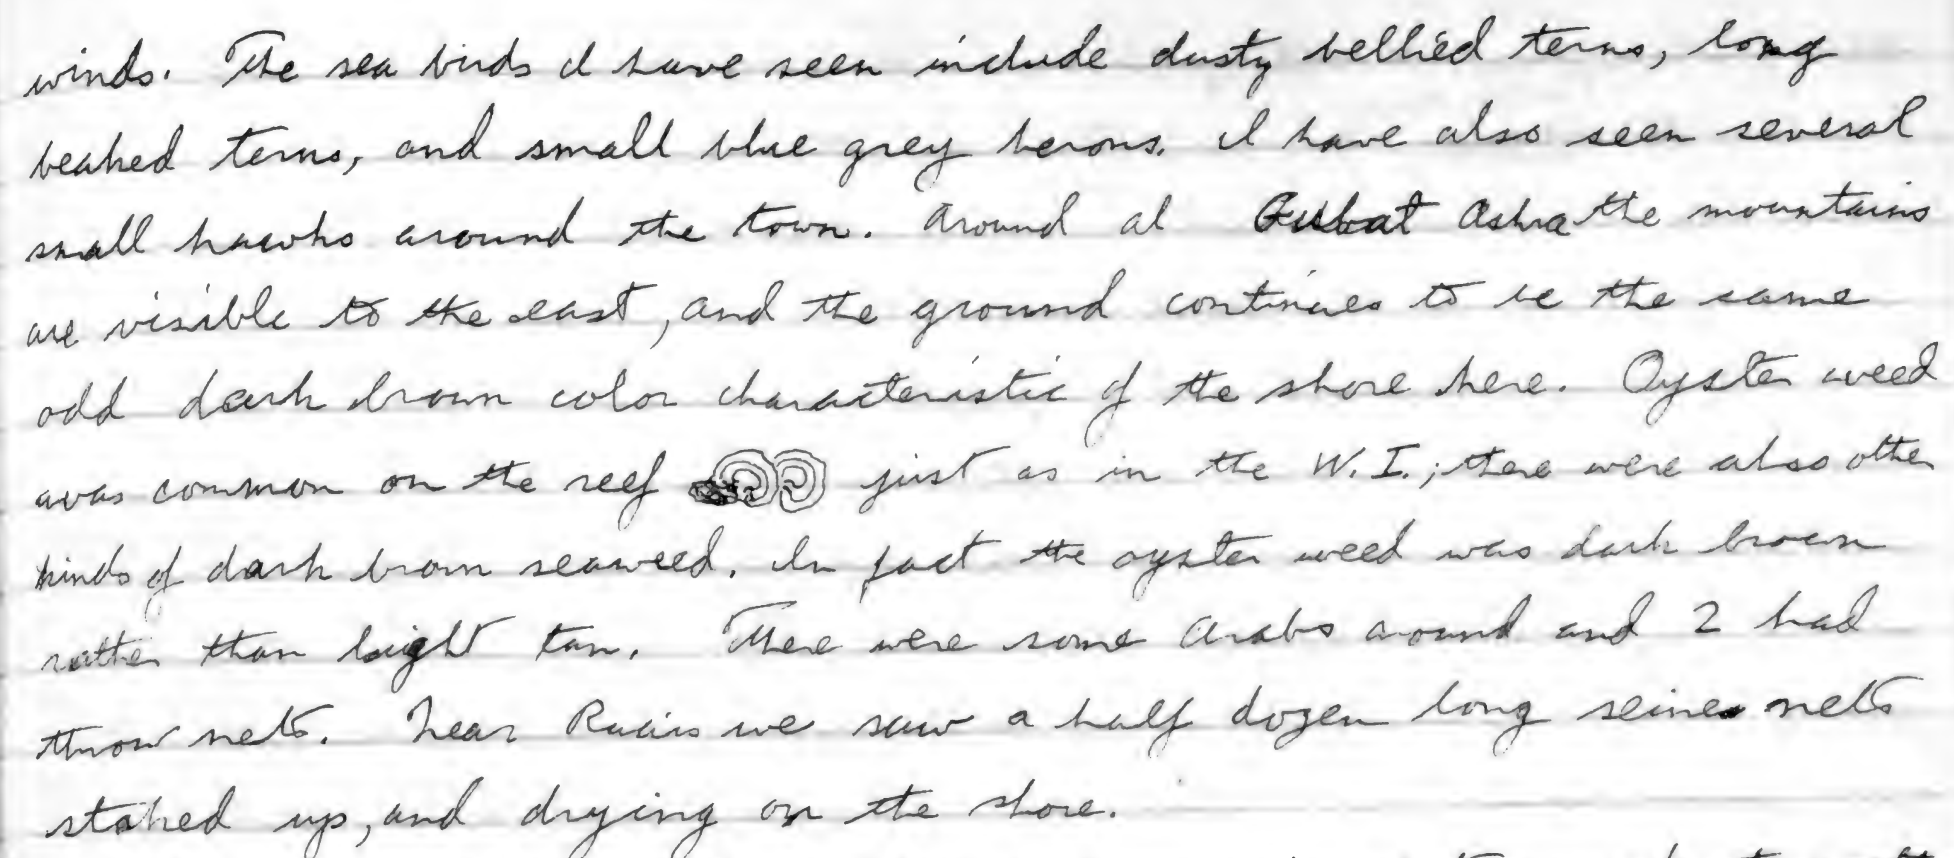 winds. The sea birds I have seen include dusty bellied terns, long
beaked terns, and small blue grey herons. I have also seen several
small hawks around the town. Around al Gubat Ashra the mountains
are visible to the east, and the ground continues to be the same
odd dark brown color characteristic of the shore here. Oyster weed
was common on the reef just as in the W.I.; there were also other
kinds of dark brown seaweed. In fact the oyster weed was dark brown
rather than light tan. There were some Arabs around and 2 had
throw nets. Near Rauis we saw a half dozen long seine nets
staked up, and drying on the shore.